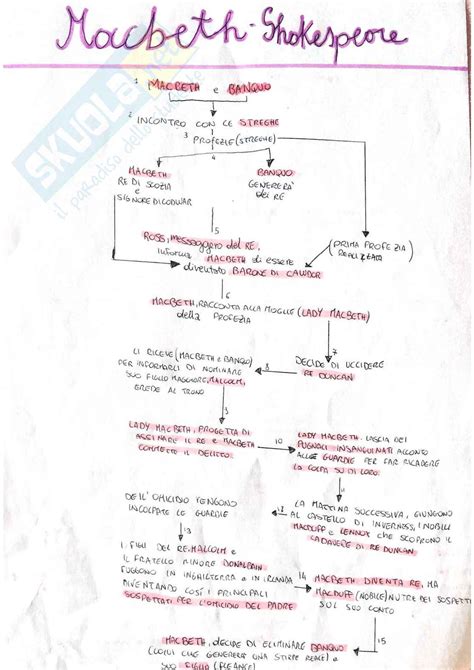 Macbeth - Shakespeare
SKUOLA.net
il paradiso dello studente
1 MACBETH e BANQUO
2 INCONTRO CON LE STREGHE
3 PROFEZIE (STREGHE)
4
MACBETH
RE DI SCOZIA
e
SIGNORE DI CODWAR
BANQUO
GENERERA'
dei RE
5
ROSS, messaggero del RE,
informa MACBETH di essere
diventato BARONE DI CAWDOR
(PRIMA PROFEZIA
REALIZZATA)
6
MACBETH, RACCONTA ALLA MOGLIE (LADY MACBETH)
della PROFEZIA
7
DECIDE DI UCCIDERE
RE DUNCAN
8
LI RICEVE (MACBETH e BANQUO)
PER INFORMARLI DI NOMINARE
SUO FIGLIO MAGGIORE, MALCOLM,
EREDE AL TRONO
9
LADY MACBETH, PROGETTA DI
ASSINARE IL RE e MACBETH
COMMETTE IL DELITTO.
10
LADY MACBETH LASCIA DEI
PUGNALI INSANGUINATI ACCANTO
ALLE GUARDIE PER FAR RICADERE
LA COLPA SU DI LORO.
11
LA MATTINA SUCCESSIVA, GIUNGONO
AL CASTELLO DI INVERNESS, I NOBILI
MACDUFF e LENNOX che SCOPRONO IL
CADAVERE DI RE DUNCAN
12
DELL'OMICIDIO VENGONO
INCOLPATE LE GUARDIE
13
I FIGLI DEL RE, MALCOLM e
IL FRATELLO MINORE DONALBAIN
FUGGONO IN INGHILTERRA e IN IRLANDA
DIVENTANDO COSÌ I PRINCIPALI
SOSPETTATI PER L'OMICIDIO DEL PADRE
14
MACBETH DIVENTA RE, MA
MACDUFF (NOBILE) NUTRE DEI SOSPETTI
SUL SUO CONTO
15
MACBETH, DECIDE DI ELIMINARE BANQUO
(COLUI CHE GENERERÀ UNA STIRPE REALE) e
SUO FIGLIO (FLEANCE)